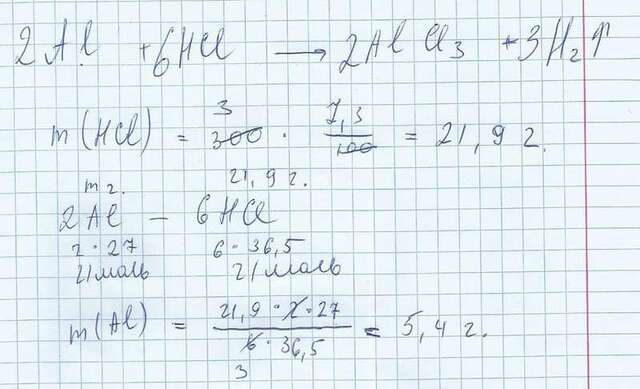 2Al + 6HCl → 2AlCl₃ + 3H₂↑
3 7,3
m(HCl) = 300 · 100 = 21,9 г.
m г. 21,9 г.
2Al — 6HCl
2·27 6·36,5
г/моль г/моль
m(Al) = 21,9·2·27 / 6·36,5 = 5,4 г.
3